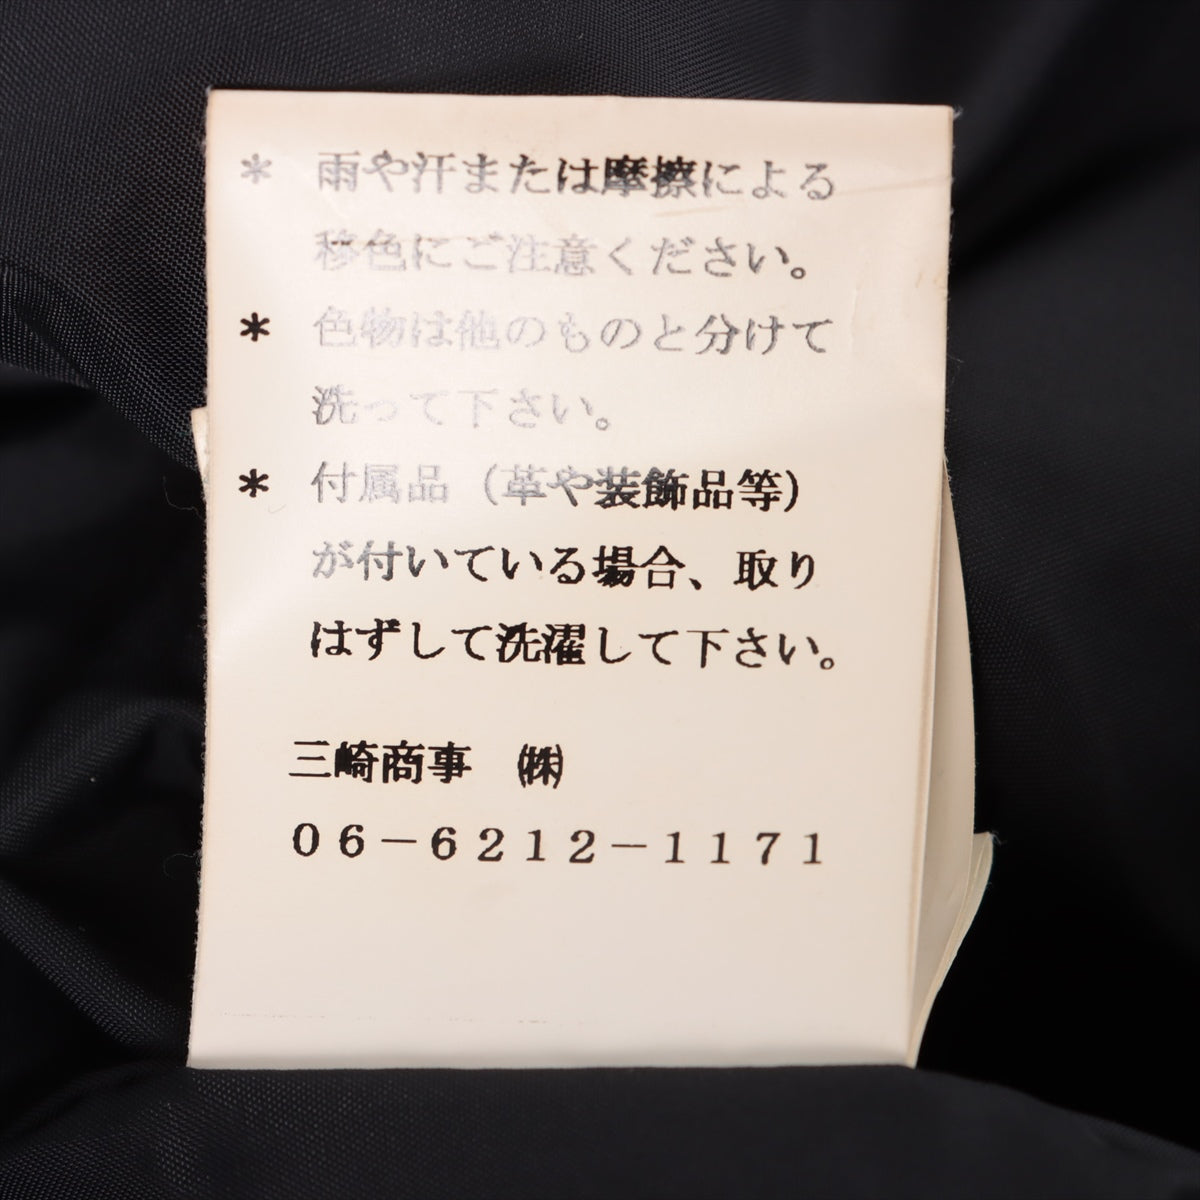 ＊ 雨や汗または摩擦による
移色にご注意ください。
＊ 色物は他のものと分けて
洗って下さい。
＊ 付属品（革や装飾品等）
が付いている場合、取り
はずして洗濯して下さい。
三崎商事 ㈱
０６－６２１２－１１７１